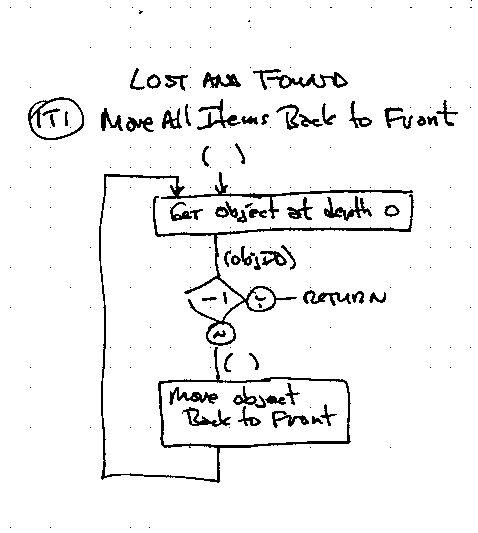 LOST AND FOUND
IT1 Move All Items Back to Front
( )
GET object at depth 0
(objID)
-1 Y RETURN
N
( )
Move object
Back to Front